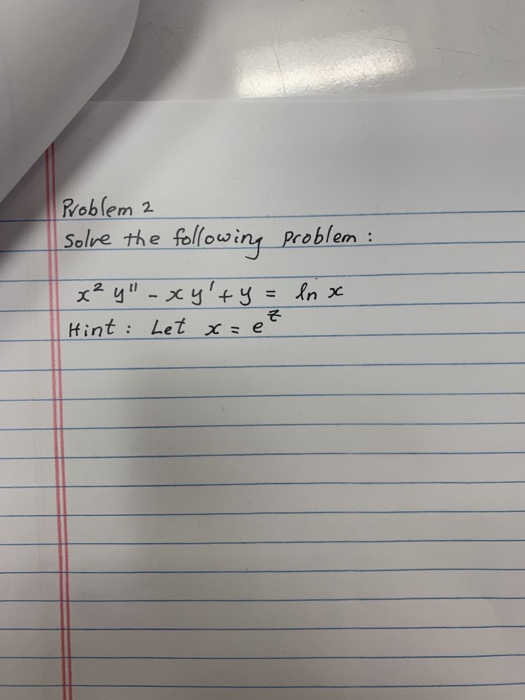 Problem 2
Solve the following problem :
x² y'' - x y' + y = ln x
Hint : Let x = e^z